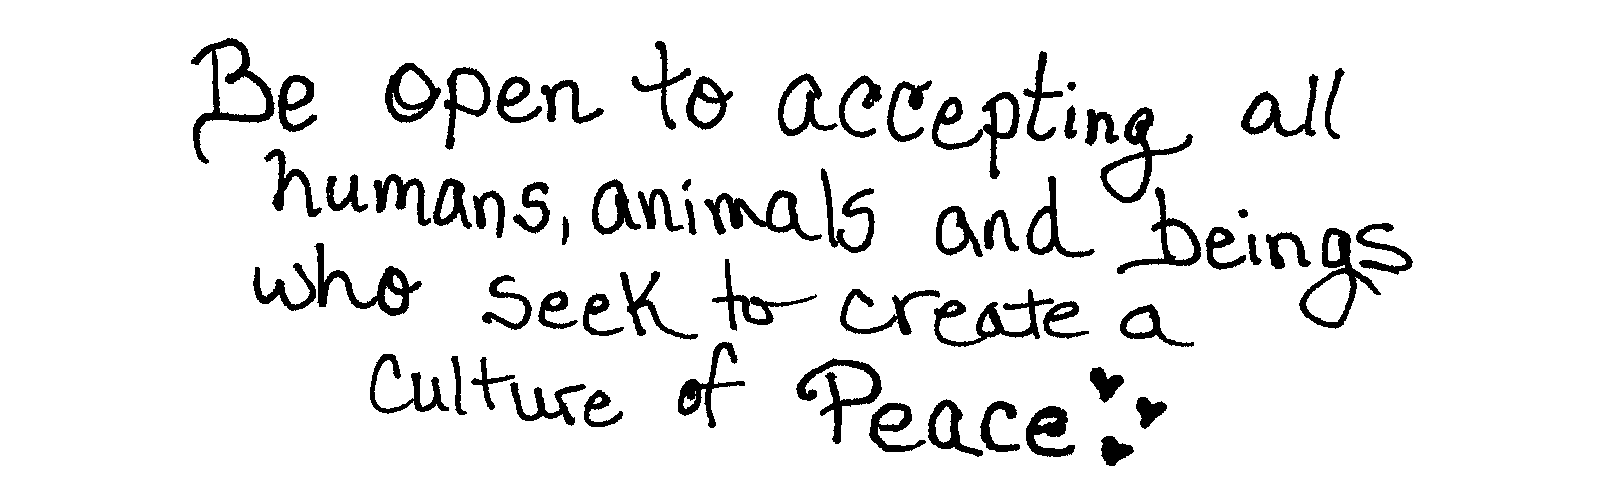 Be open to accepting all
humans, animals and beings
who seek to create a
culture of Peace